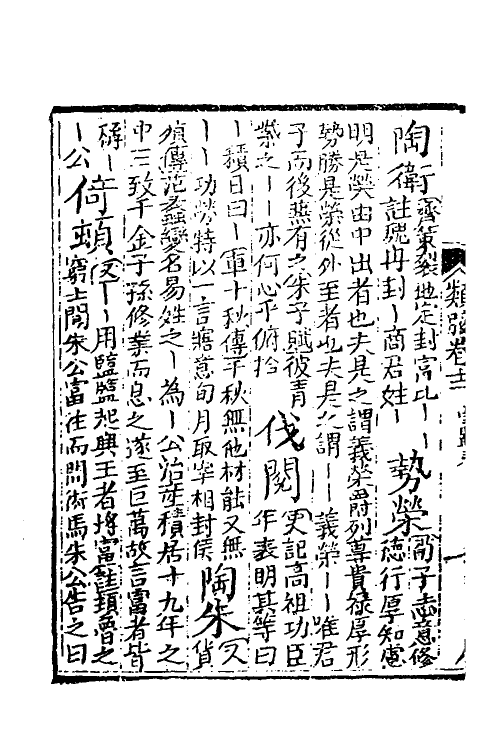 陶衛 齊策裂地定封富比丨丨
註魏冉封丨商君姓丨
勢榮 荀子志意修
德行厚知慮
明是榮由中出者也夫是之謂義榮爵列尊貴祿厚形
勢勝是榮從外至者也夫是之謂丨丨義榮丨丨唯君
子而後兼有之朱子賦彼青
紫之丨丨亦何心乎俯拾
伐閱 史記高祖功臣
年表明其等曰
丨積日曰丨車千秋傳千秋無他材能又無
丨丨功勞特以一言寤意旬月取宰相封侯
陶朱 又
貨
殖傳范蠡變名易姓之丨為丨公治產積居十九年之
中三致千金子孫修業而息之遂至巨萬故言富者皆
稱丨
丨公
倚頓 又丨丨用鹽鹽起與王者埒富註頓魯之
窮士聞朱公富往而問術焉朱公告之曰